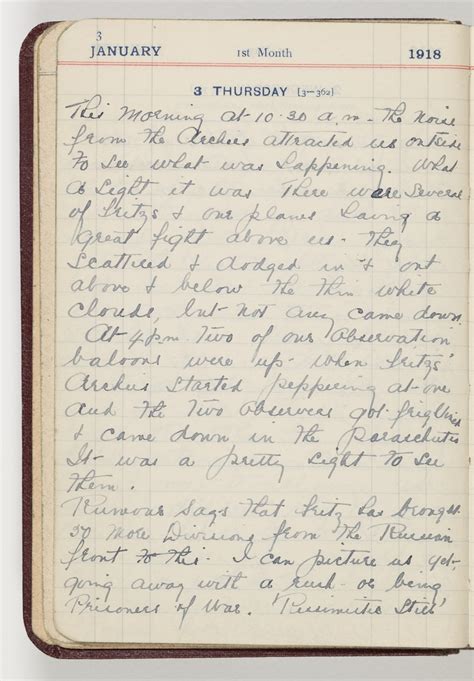 3
JANUARY 1st Month 1918
3 THURSDAY [3—362]
This Morning at 10.30 a.m. the noise
from the Archies attracted us outside
to see what was happening. What
a sight it was There were several
of Fritzs & our planes having a
great fight above us. They
scattered & dodged in & out
above & below the thin white
clouds, but not any came down
At 4 p.m. two of our observation
baloons were up - when Fritzs'
Archies started peppering at one
and the two observers got frightened
& came down in the parachutes
It was a pretty sight to see
them.
Rumour says that Fritz has brought
30 more Divisions from the Russian
front to this. I can picture us yet
going away with a rush or being
Prisoners of War.